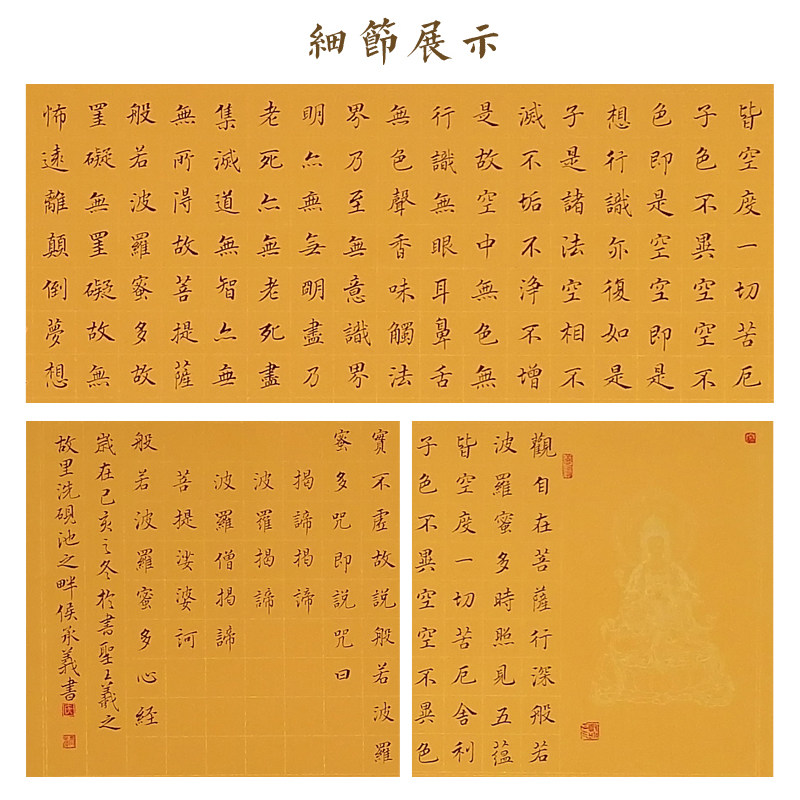 細節展示
皆空度一切苦厄
子色不異空空不
色即是空空即是
想行識亦復如是
子是諸法空相不
滅不垢不淨不增
是故空中無色無
行識無眼耳鼻舌
無色聲香味觸法
界乃至無意識界
明亦無無明盡乃
老死亦無老死盡
集滅道無智亦無
無所得故菩提薩
般若波羅蜜多故
罣礙無罣礙故無
怖遠離顛倒夢想
實不虛故說般若波羅
蜜多咒即說咒曰
揭諦揭諦
波羅揭諦
波羅僧揭諦
菩提娑婆訶
般若波羅蜜多心経
歲在己亥之冬於書聖王羲之
故里洗硯池之畔侯承義書
觀自在菩薩行深般若
波羅蜜多時照見五蘊
皆空度一切苦厄舍利
子色不異空空不異色